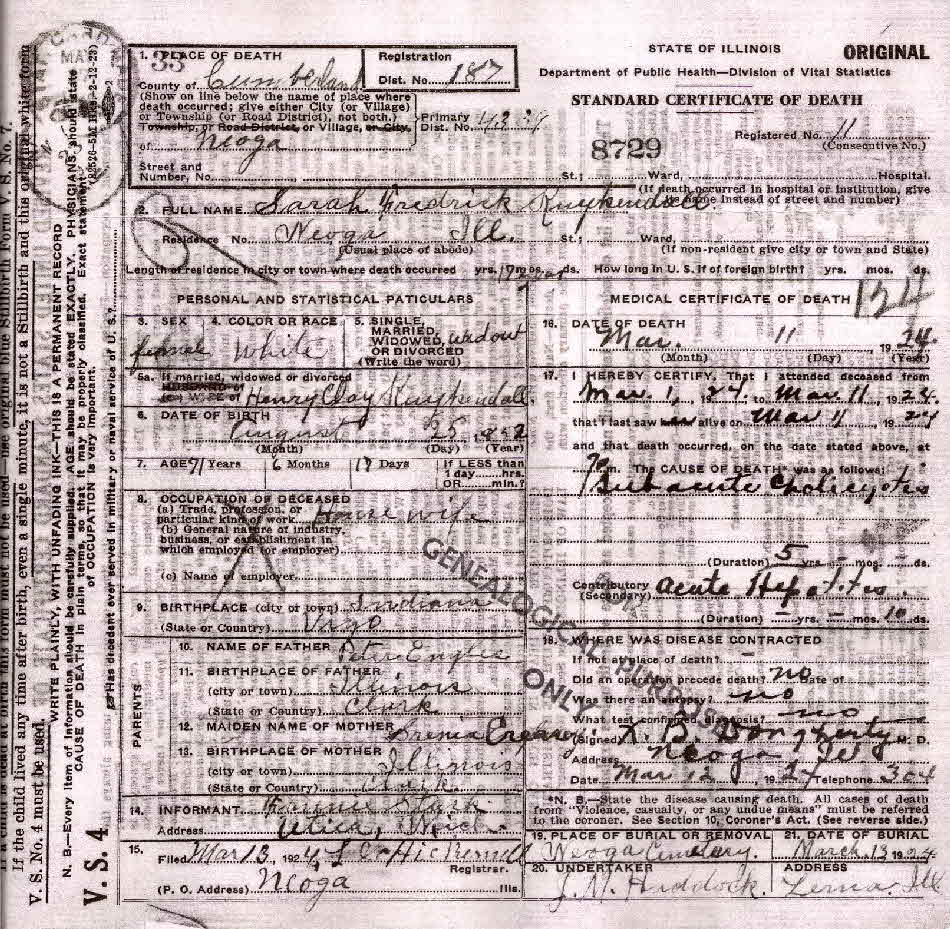 STATE OF ILLINOIS
ORIGINAL
Department of Public Health—Division of Vital Statistics
STANDARD CERTIFICATE OF DEATH
Registered No. 11
(Consecutive No.)
8729
1. PLACE OF DEATH
33
County of Cumberland
Registration Dist. No. 187
(Show on line below the name of place where
death occurred; give either City (or Village)
or Township (or Road District), not both.)
Township, or Road District, or Village, or City,
of Neoga
Primary Dist. No. 4339
Street and
Number, No. St.; Ward, Hospital.
(If death occurred in hospital or institution, give
name instead of street and number)
2. FULL NAME Sarah Fredrick Kuykendall
Residence No. Neoga Ill. St.; Ward,
(Usual place of abode) (If non-resident give city or town and State)
Length of residence in city or town where death occurred yrs. mos. ds. How long in U. S. if of foreign birth? yrs. mos. ds.
PERSONAL AND STATISTICAL PATICULARS
3. SEX female
4. COLOR OR RACE White
5. SINGLE, MARRIED, WIDOWED, OR DIVORCED (Write the word) widow
5a. If married, widowed or divorced
HUSBAND of
(or) WIFE of Henry Clay Kuykendall
6. DATE OF BIRTH August 25, 1852
(Month) (Day) (Year)
7. AGE 71 Years 6 Months Days
If LESS than 1 day....hrs. OR....min.?
8. OCCUPATION OF DECEASED
(a) Trade, profession, or
particular kind of work House wife
(b) General nature of industry,
business, or establishment in
which employed (or employer)
(c) Name of employer
9. BIRTHPLACE (city or town) Indiana
(State or Country) Vigo
PARENTS
10. NAME OF FATHER Peter
11. BIRTHPLACE OF FATHER
(city or town) Illinois
(State or Country) Clark
12. MAIDEN NAME OF MOTHER
13. BIRTHPLACE OF MOTHER
(city or town) Illinois
(State or Country) Clark
14. INFORMANT
Address Utica, Mich
15. Filed Mar 13, 1924
Registrar.
(P. O. Address) Neoga Ills.
MEDICAL CERTIFICATE OF DEATH
16. DATE OF DEATH
Mar. 11 1924
(Month) (Day) (Year)
17. I HEREBY CERTIFY, That I attended deceased from
Mar. 1, 1924, to Mar 11, 1924
that I last saw alive on Mar 11, 1924
and that death occurred, on the date stated above, at
m. The CAUSE OF DEATH* was as follows:
Subacute
(Duration) 5 yrs. – mos. ds.
Contributory (Secondary) acute Hepatitis
(Duration) – yrs. – mos. 10 ds.
18. WHERE WAS DISEASE CONTRACTED
If not at place of death? –
Did an operation precede death? no Date of
Was there an autopsy? no
What test confirmed diagnosis? no
(Signed) Dougherty M. D.
Address Neoga Ill
Date Mar 12, 1924 Telephone 304
*N. B.—State the disease causing death. All cases of death
from "Violence, casualty, or any undue means" must be referred
to the coroner. See Section 10, Coroner's Act. (See reverse side.)
19. PLACE OF BURIAL OR REMOVAL
Neoga Cemetery.
21. DATE OF BURIAL
March 13 1924
20. UNDERTAKER
J. M. Haddock.
ADDRESS
Lerna. Ill
GENEALOGICAL PURPOSES
ONLY
V. S. No. 4 must be used.
If the child lived any time after birth, even a single minute, it is not a Stillbirth and this original white form
V. S. 4
N. B.—Every item of information should be carefully supplied. AGE should be stated EXACTLY. PHYSICIANS should state
CAUSE OF DEATH in plain terms, so that it may be properly classified. Exact statement
of OCCUPATION is very important.
WRITE PLAINLY, WITH UNFADING INK—THIS IS A PERMANENT RECORD
Has decedent ever served in military or naval service of U. S.?